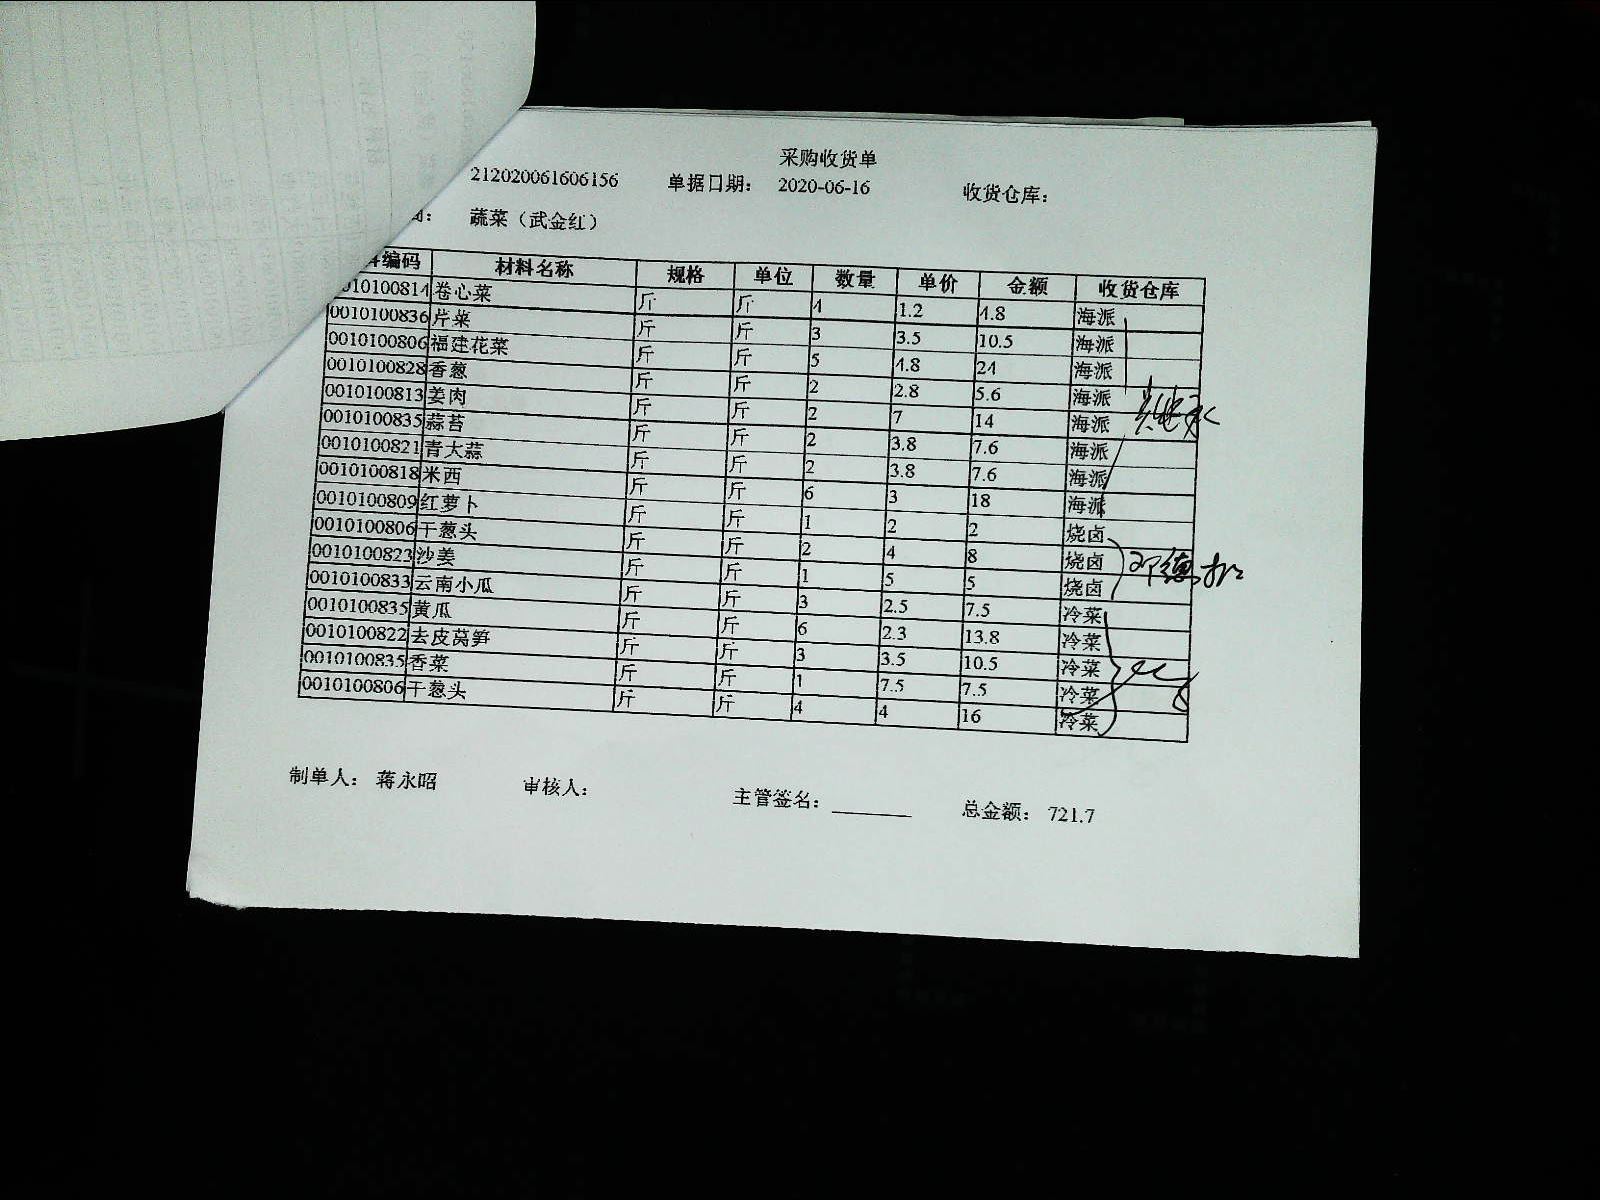 采购收货单
212020061606156 单据日期： 2020-06-16 收货仓库：
商： 蔬菜（武金红）
编码 材料名称 规格 单位 数量 单价 金额 收货仓库
010100814 卷心菜 斤 斤 4 1.2 4.8 海派
0010100836 芹菜 斤 斤 3 3.5 10.5 海派
0010100806 福建花菜 斤 斤 5 4.8 24 海派
0010100828 香葱 斤 斤 2 2.8 5.6 海派
0010100813 姜肉 斤 斤 2 7 14 海派
0010100835 蒜苔 斤 斤 2 3.8 7.6 海派
0010100821 青大蒜 斤 斤 2 3.8 7.6 海派
0010100818 米西 斤 斤 6 3 18 海派
0010100809 红萝卜 斤 斤 1 2 2 烧卤
0010100806 干葱头 斤 斤 2 4 8 烧卤
0010100823 沙姜 斤 斤 1 5 5 烧卤
0010100833 云南小瓜 斤 斤 3 2.5 7.5 冷菜
0010100835 黄瓜 斤 斤 6 2.3 13.8 冷菜
0010100822 去皮莴笋 斤 斤 3 3.5 10.5 冷菜
0010100835 香菜 斤 斤 1 7.5 7.5 冷菜
0010100806 干葱头 斤 斤 4 4 16 冷菜
制单人： 蒋永昭 审核人： 主管签名： 总金额： 721.7